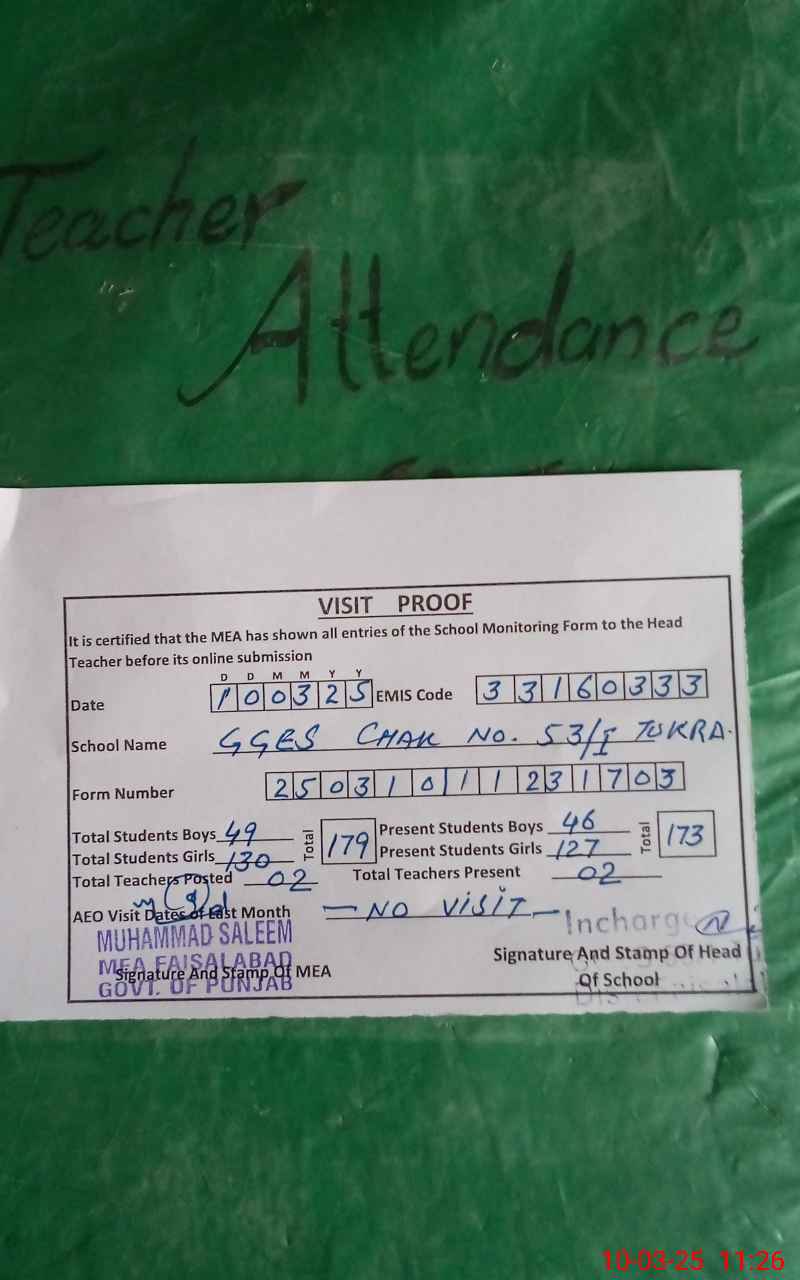 Teacher
Attendance
VISIT PROOF
It is certified that the MEA has shown all entries of the School Monitoring Form to the Head
Teacher before its online submission
D D M M Y Y
Date 100325 EMIS Code 33160333
School Name GGES CHAK NO. 53/I TUKRA.
Form Number 250310111231703
Total Students Boys 49 Total 179 Present Students Boys 46 Total 173
Total Students Girls 130 Present Students Girls 127
Total Teachers Posted 02 Total Teachers Present 02
AEO Visit Dates of Last Month — NO VISIT —
Incharge
MUHAMMAD SALEEM
MEA FAISALABAD
GOVT. OF PUNJAB
Signature And Stamp Of MEA
Signature And Stamp Of Head
Of School
10-03-25 11:26